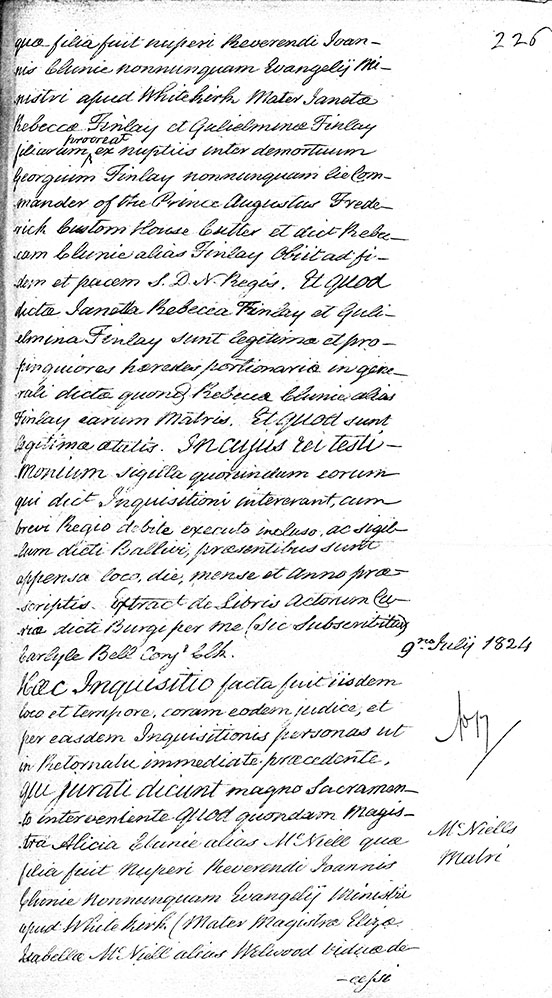 226
quæ filia fuit nuperi Reverendi Joan-
nis Clunie nonnunquam Evangelij Mi-
nistri apud Whitekirk Mater Janetæ
Rebeccæ Finlay et Gulielminæ Finlay
procreat
filiarum ex nuptiis inter demortuum
Georgium Finlay nonnunquam lie Com-
mander of the Prince Augustus Frede-
rick Custom House Cutter et dict Rebec-
cam Clunie alias Finlay Obiit ad fi-
dem et pacem S. D. N. Regis. Et quod
dictæ Janetta Rebecca Finlay et Guli-
elmina Finlay sunt legitimæ et pro-
pinquiores hæredes portionariæ in gene-
rali dictæ quond Rebeccæ Clunie alias
Finlay earum Matris. Et quod sunt
legitimæ ætatis. In cujus rei testi-
monium sigilla quorundum eorum
qui dict Inquisitioni intererant, cum
brevi Regio debite executo incluso, ac sigil-
lum dicti Ballivi, præsentibus sunt
appensa loco, die, mense et Anno præ-
scriptis. Extract de Libris Actorum Cu-
riæ dicti Burgi per me (sic Subscribitur)
Carlyle Bell Conj Clk.
9no July 1824
Hæc Inquisitio facta fuit iisdem
loco et tempore, coram eodem judice, et
per easdem Inquisitionis personas ut
in Retornatu immediate præcedente,
Qui jurati dicunt magno Sacramen-
to interveniente Quod quondam Magis-
tra Alicia Clunie alias McNiell quæ
McNiells
Matri
filia fuit nuperi Reverendi Joannis
Clunie nonnunquam Evangelij Ministri
apud Whitekirk (Mater Magistræ Elizæ
Isabellæ McNiell alias Welwood viduæ de-
-cessi